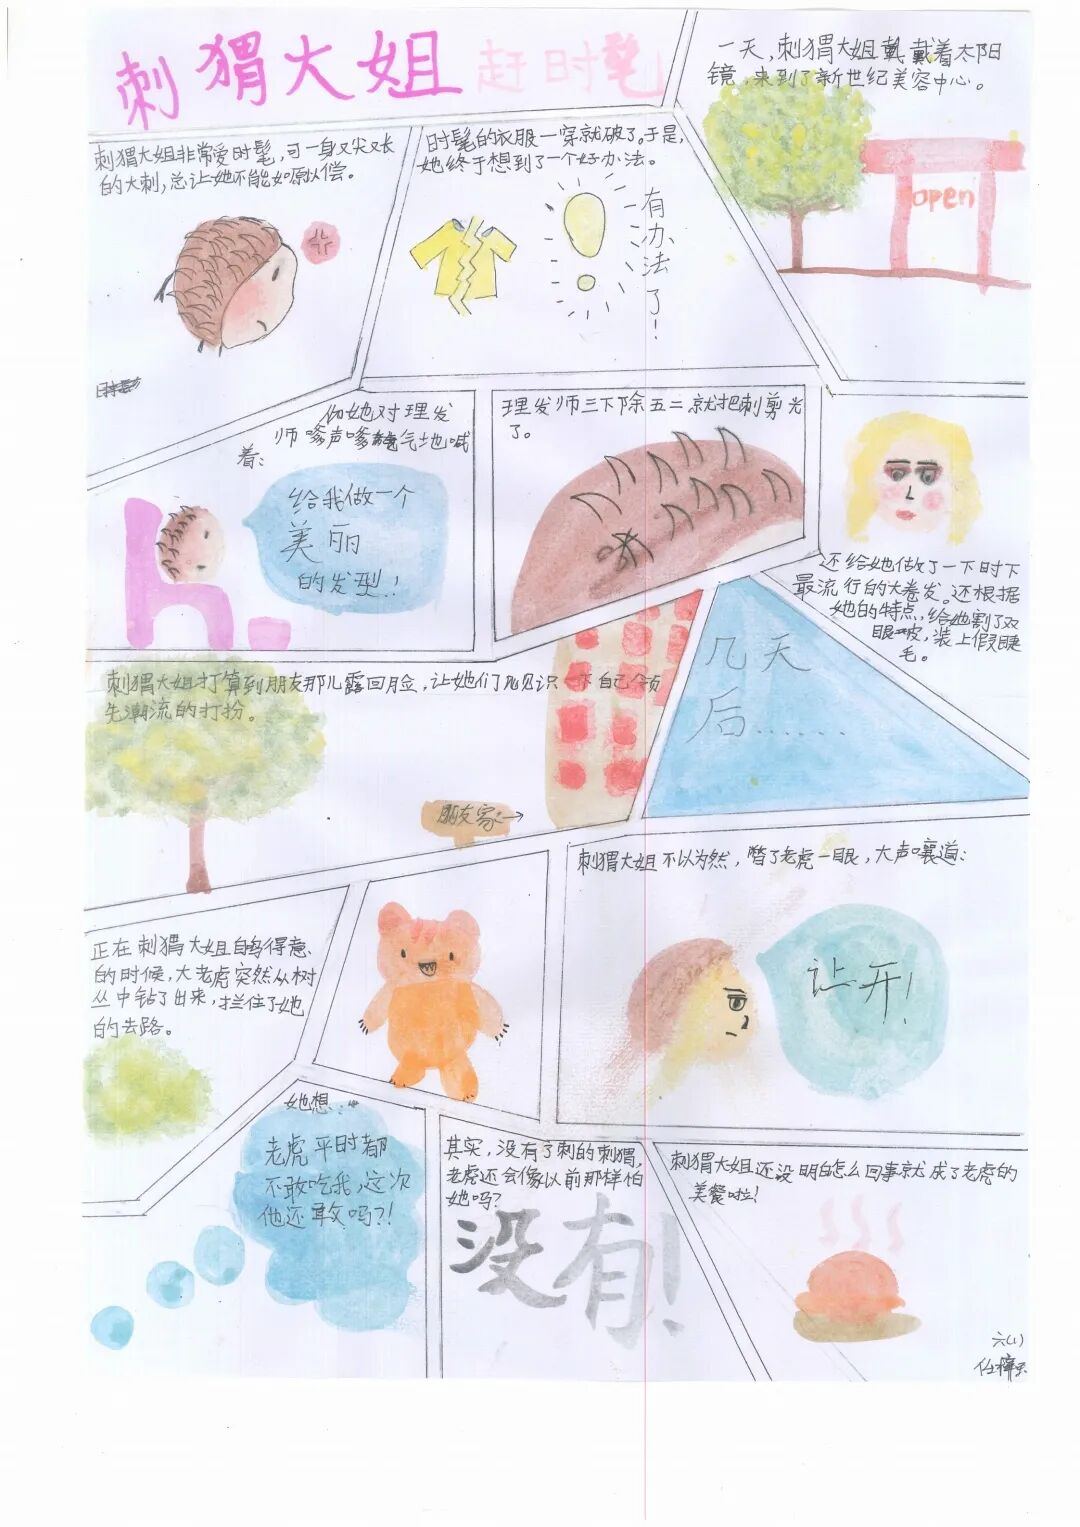 刺猬大姐赶时髦
刺猬大姐非常爱时髦，可一身又尖又长
的大刺，总让她不能如原以偿。
时髦的衣服一穿就破了。于是，
她终于想到了一个好办法。
有办法了！
一天，刺猬大姐戴着太阳
镜，来到了新世纪美容中心。
open
她对理发
师嗲声嗲气地喊
着：
给我做一个
美丽
的发型！
理发师三下除五二就把刺剪光
了。
还给她做了一下时下
最流行的大卷发。还根据
她的特点，给她割了双
眼皮，装上假睫
毛。
几天
后……
刺猬大姐打算到朋友那儿露回月脸，让她们见识一下自己领
先潮流的打扮。
朋友家→
正在刺猬大姐自鸣得意
的时候，大老虎突然从树
丛中钻了出来，拦住了她
的去路。
刺猬大姐不以为然，瞥了老虎一眼，大声嚷道：
让开！
她想…
老虎平时都
不敢吃我，这次
他还敢吗？！
其实，没有了刺的刺猬，
老虎还会像以前那样怕
她吗？
没有！
刺猬大姐还没明白怎么回事就成了老虎的
美餐啦！
六(1)